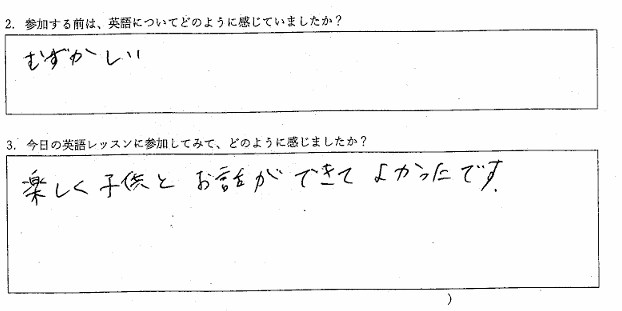 2. 参加する前は、英語についてどのように感じていましたか？
むずかしい
3. 今日の英語レッスンに参加してみて、どのように感じましたか？
楽しく子供とお話ができてよかったです.
)